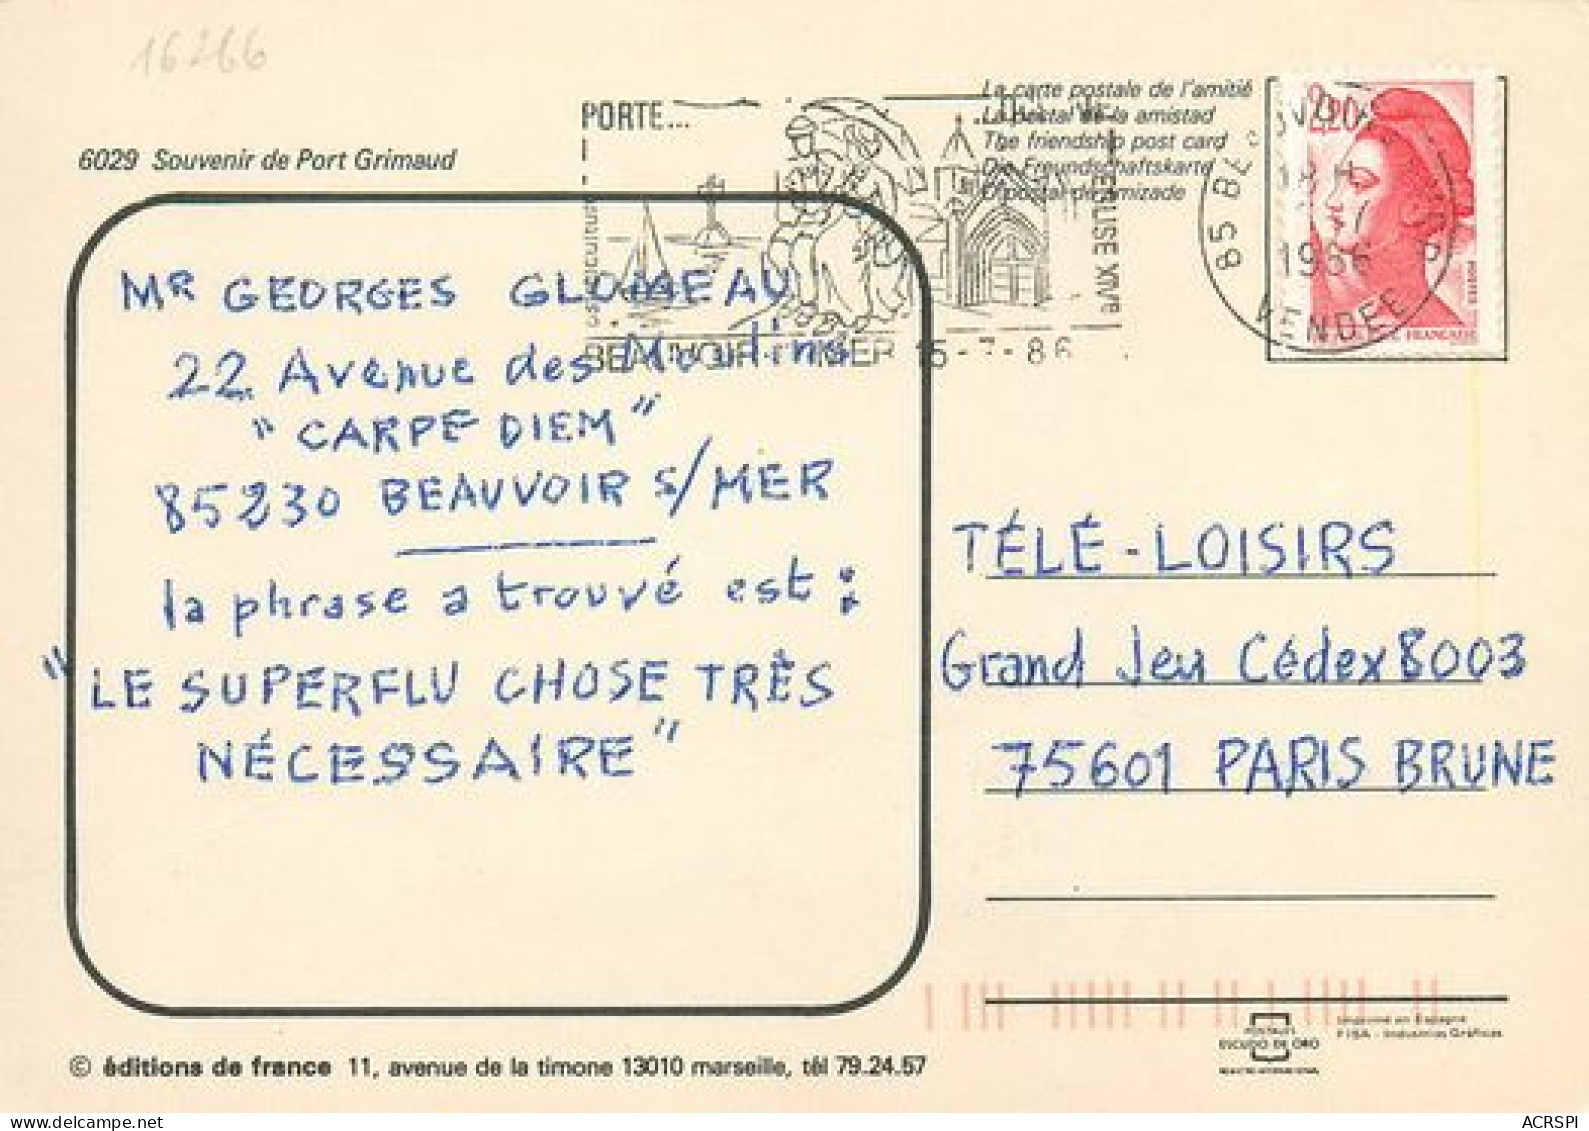 16266
6029 Souvenir de Port Grimaud
PORTE...
La carte postale de l'amitié
La postal de la amistad
The friendship post card
Die Freundschaftskarte
O postal da amizade
EGLISE XIVe
BEAUVOIR MER 15-7-86
2,20
1986
VENDEE
85
POSTES
FRANÇAISE
MR GEORGES GLOMEAU
22 Avenue des Moulins
"CARPE DIEM"
85230 BEAUVOIR S/MER
la phrase a trouvé est :
"LE SUPERFLU CHOSE TRÈS
NÉCESSAIRE"
TÉLÉ-LOISIRS
Grand Jeu Cédex 8003
75601 PARIS BRUNE
© éditions de france 11, avenue de la timone 13010 marseille, tél 79.24.57
POSTALES
ESCUDO DE ORO
Imprimé en Espagne
FISA - Industrias Gráficas
ACRSPI